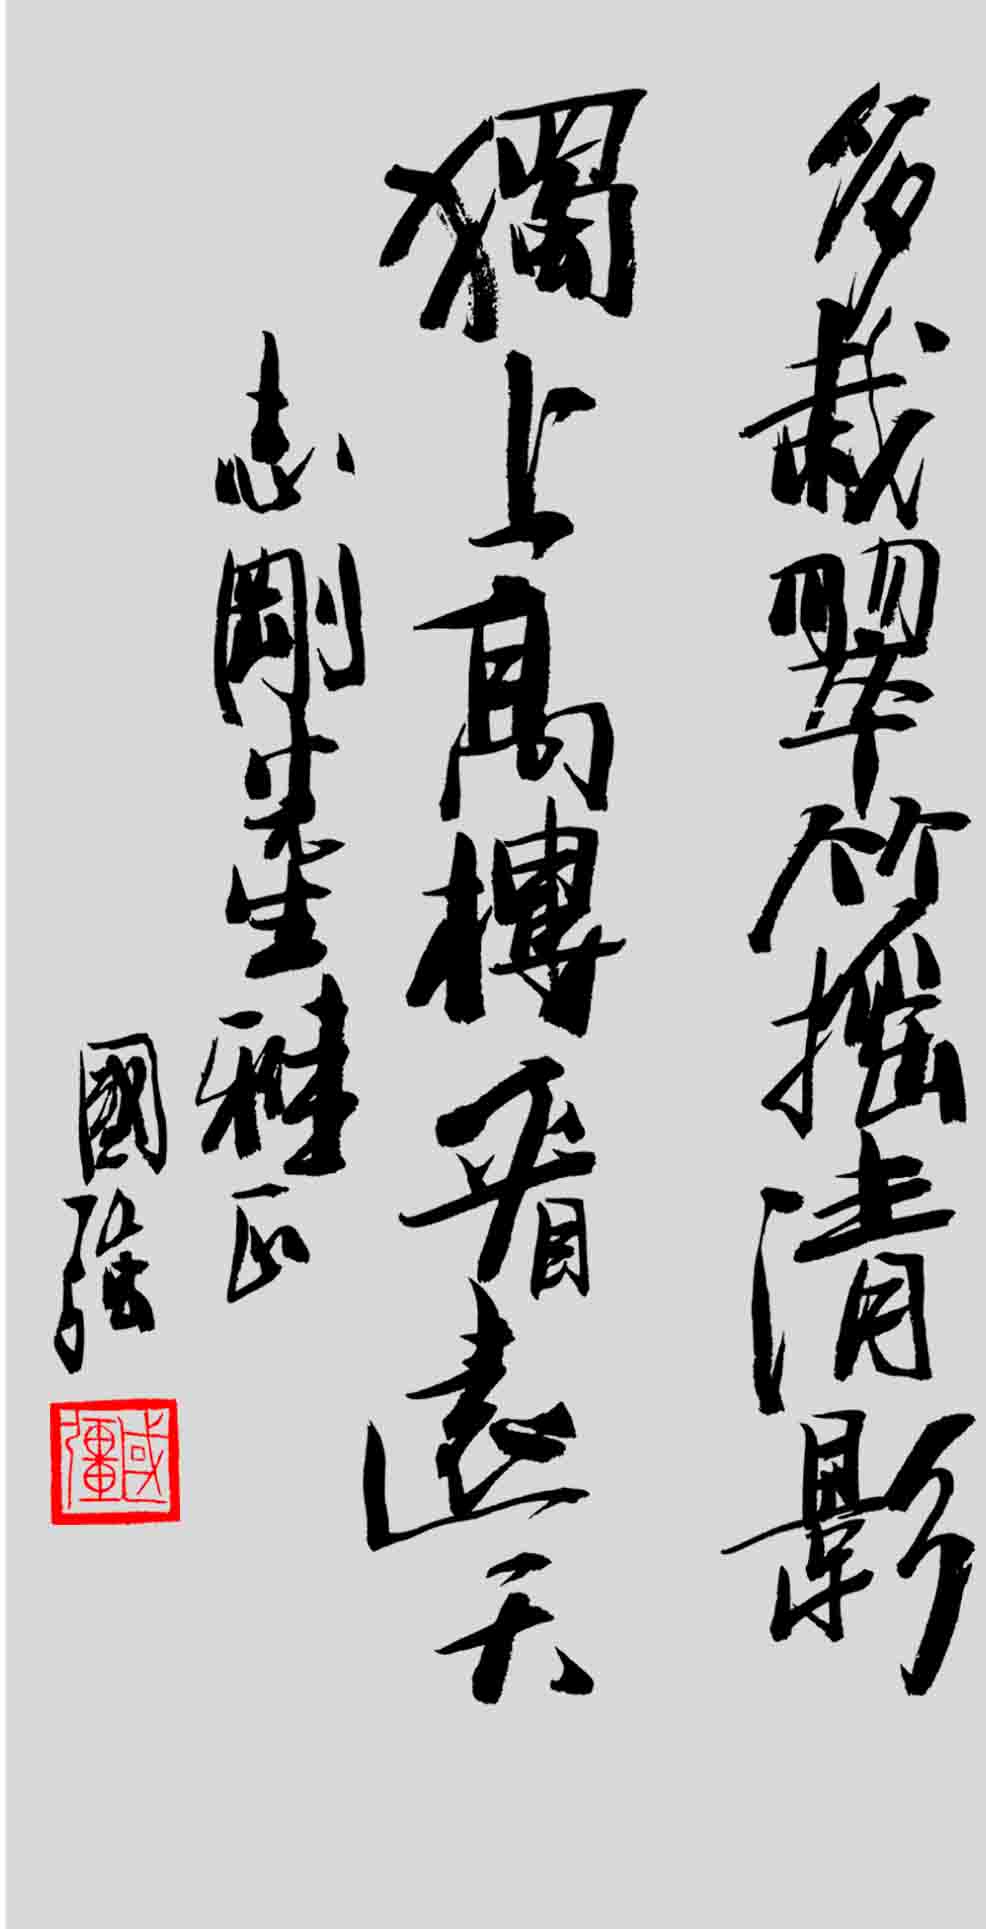 多栽翠竹摇清影
獨上高樓看遠天
志剛先生雅正
國强
國疆